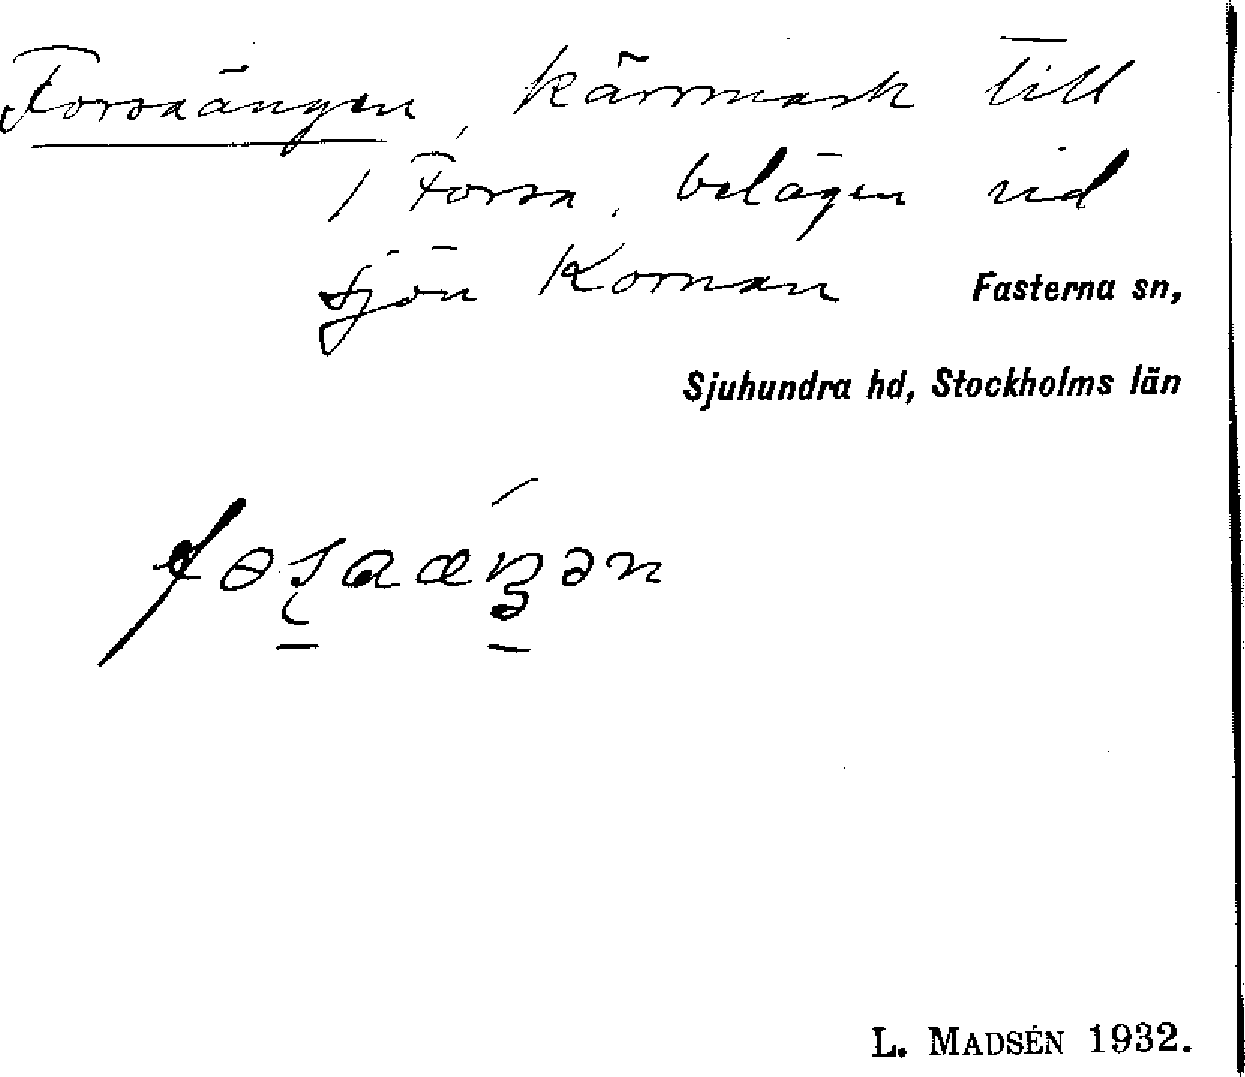 Forsaängen, kärrmark till
1 Forsa, belägen vid
sjön Kornan
Fasterna sn,
Sjuhundra hd, Stockholms län
L. MADSÉN 1932.